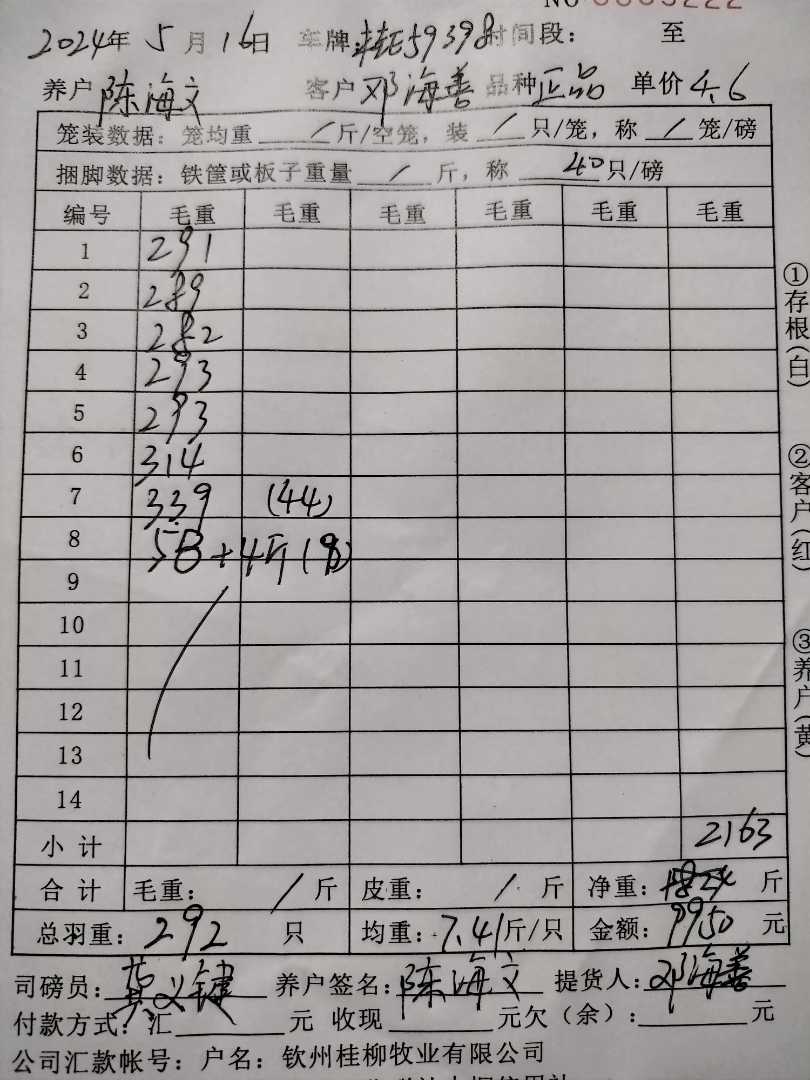 NO 0005222
2024年 5 月 16日 车牌 桂E59398 时间段： 至
养户 陈海文 客户 邓海善 品种 正品 单价 4.6
笼装数据：笼均重 / 斤/空笼，装 / 只/笼，称 / 笼/磅
捆脚数据：铁筐或板子重量 / 斤，称 40 只/磅
编号 毛重 毛重 毛重 毛重 毛重 毛重
1 291
2 289
3 282
4 293
5 293
6 314
7 339 (44)
8 5B+4斤(8)
9
10
11
12
13
14
小计 2163
合计 毛重： / 斤 皮重： / 斤 净重： 斤
总羽重： 292 只 均重： 7.41 斤/只 金额： 9950 元
司磅员： 莫义键 养户签名： 陈海文 提货人： 邓海善
付款方式：汇 元 收现 元欠（余）： 元
公司汇款帐号：户名：钦州桂柳牧业有限公司
①存根(白)
②客户(红)
③养户(黄)